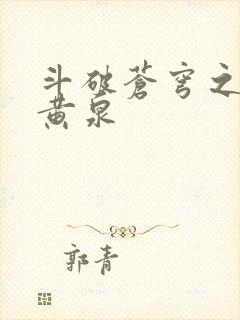 斗破蒼穹之
黄泉
郭青